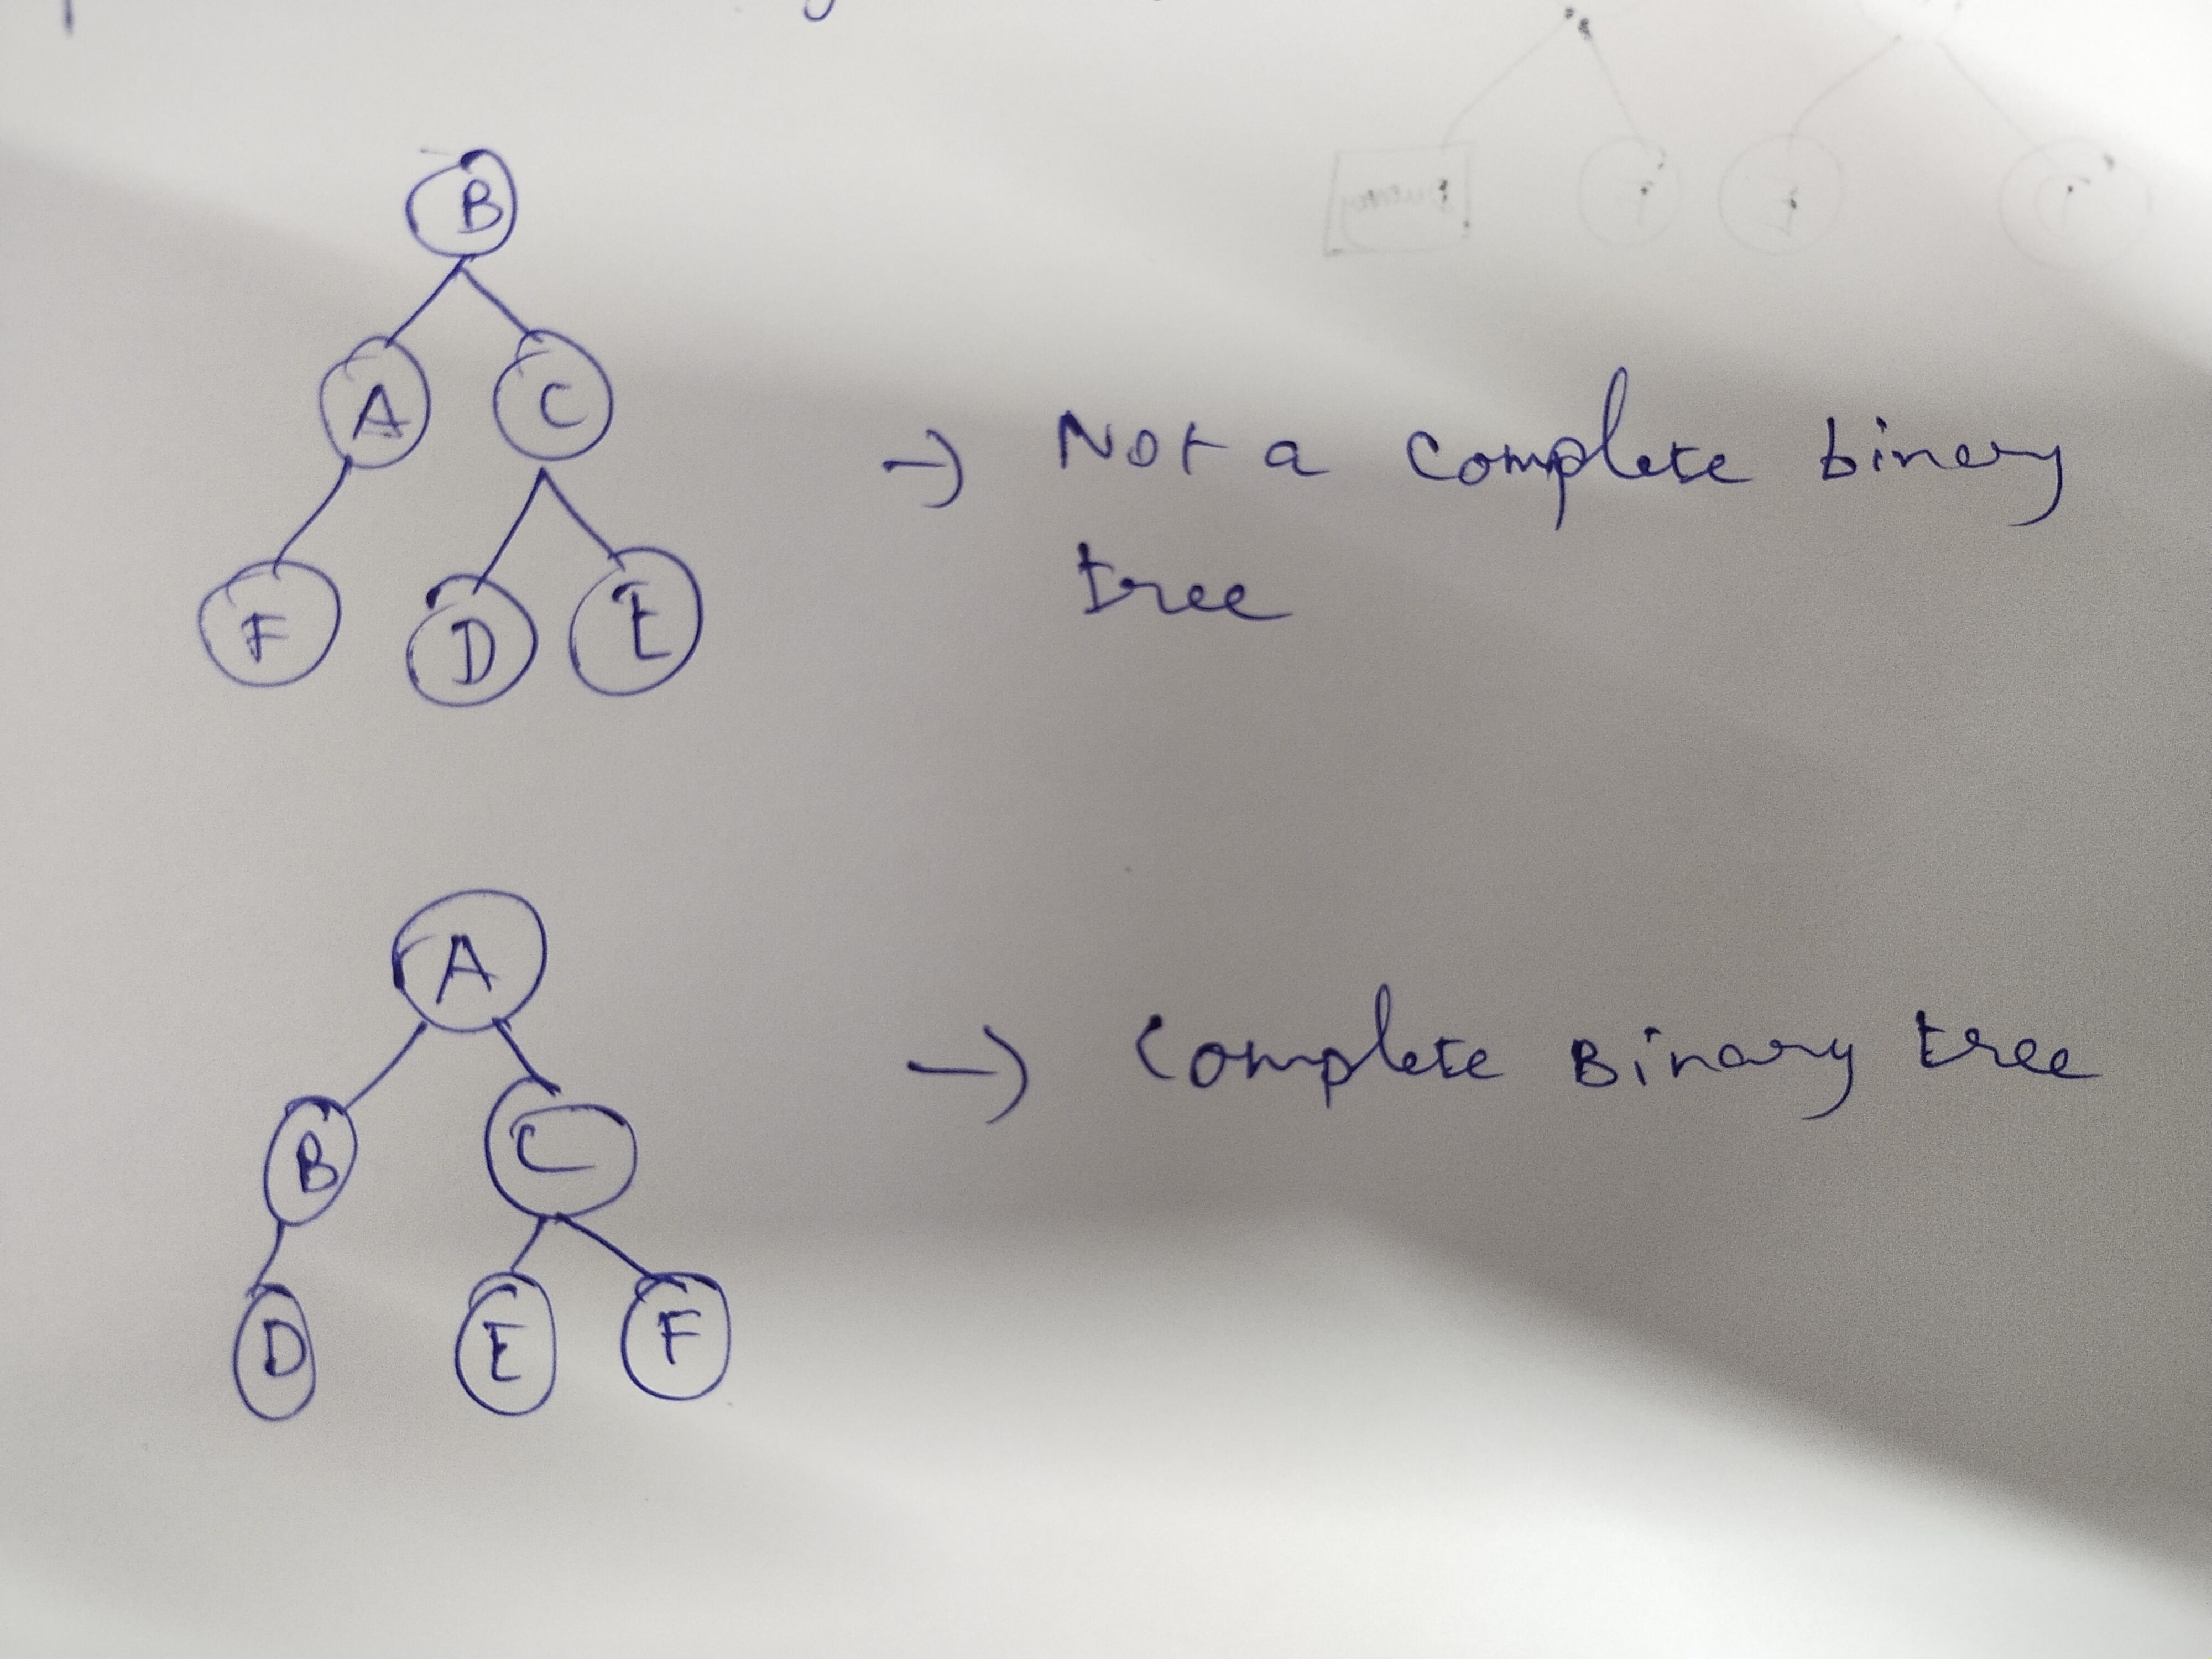 B
A C
F D E
→ Not a complete binery
tree
A
B C
D E F
→ Complete Binary tree